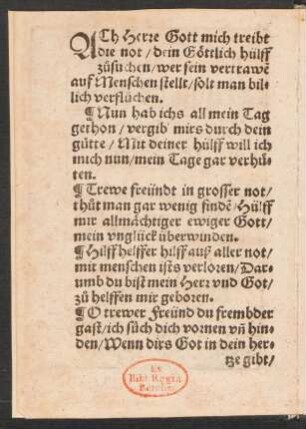 ACh Herre Gott mich treibt
die not / dein Göttlich hülff
zůsuchen / wer sein vertrawē
auff Menschen stellt / solt man bil-
lich verflůchen.
¶Nun hab ichs all mein Tag
gethon / vergib mirs durch dein
gütte / Mit deiner hülff will ich
mich nun / mein Tage gar verhů-
ten.
¶Trewe freündt in grosser not /
thůt man gar wenig findē / Hülff
mir allmächtiger ewiger Gott /
mein vnglück überwinden.
¶Hilff helffer hilff auß aller not /
mit menschen ists verloren / Dar-
umb du bist mein Herr vnd Got /
zů helffen mir geboren.
¶O trewer Freünd du frembder
gast / ich sůch dich vornen vñ hin-
den / Wenn dirs Got in dein her-
tze gibt /
Ex
Bibl. Regia
Berolin.